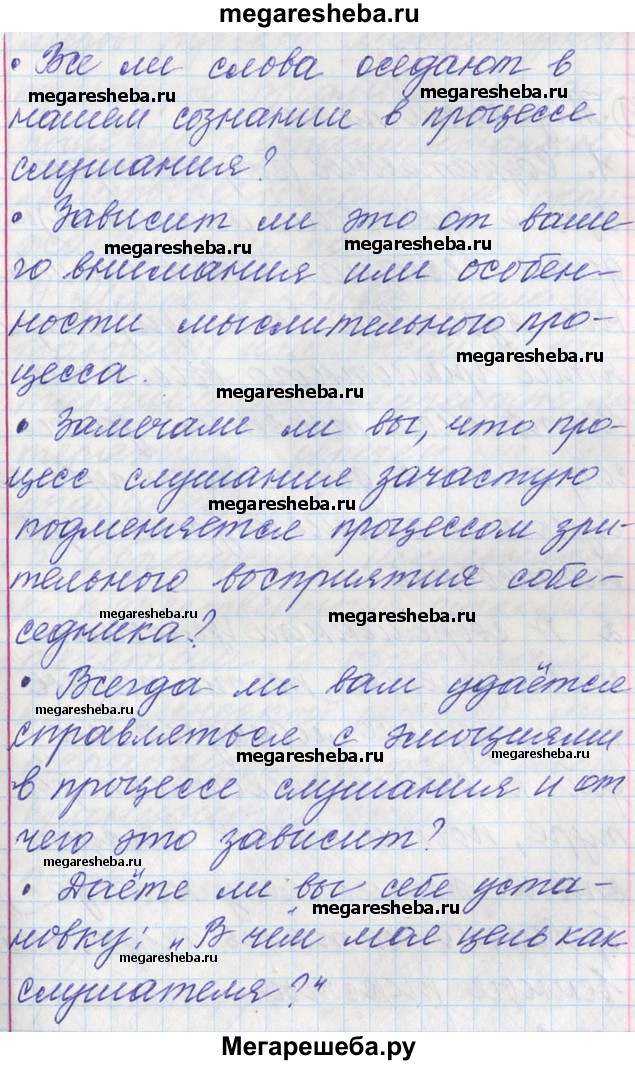 megaresheba.ru
• Все ли слова оседают в
megaresheba.ru megaresheba.ru
нашем сознании в процессе
слушания?
• Зависит ли это от ваше-
megaresheba.ru megaresheba.ru
го внимания или особен-
ности мыслительного про-
megaresheba.ru
цесса.
megaresheba.ru
• Замечали ли вы, что про-
цесс слушания зачастую
megaresheba.ru
подменяется процессом зри-
тельного восприятия собе-
megaresheba.ru megaresheba.ru
седника?
• Всегда ли вам удаётся
megaresheba.ru
справляться с эмоциями
megaresheba.ru megaresheba.ru
в процессе слушания и от
чего это зависит?
megaresheba.ru
• Даёте ли вы себе уста-
megaresheba.ru
новку: „В чём моя цель как
megaresheba.ru
слушателя?"
Мегарешеба.ру